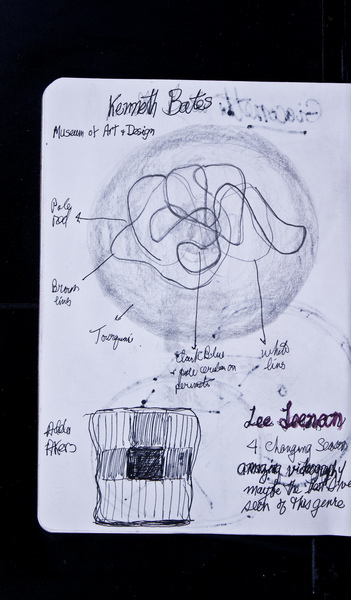 Kenneth Bates
Museum of Art + Design
Pale
red
Brown
lins
Dark Blue
+ pale cerulean on
perimeter
white
lins
Adda
Akers
Lee
4 Changing Seasons
amazing videography
maybe the best I've
seen of this genre